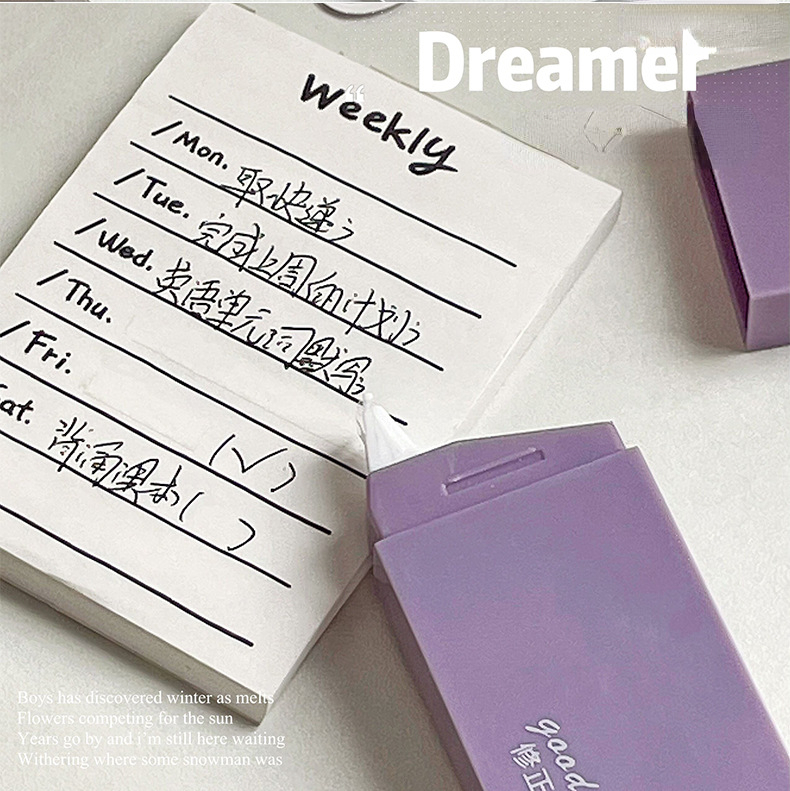 Dreamer
Weekly
/Mon. 取快递;
/Tue. 完成上周的计划;
/Wed. 英语单元词默写;
/Thu.
/Fri. (✓)
Sat. 背诵课本( )
good
修正
Boys has discovered winter as melts
Flowers competing for the sun
Years go by and j'm still here waiting
Withering where some snowman was